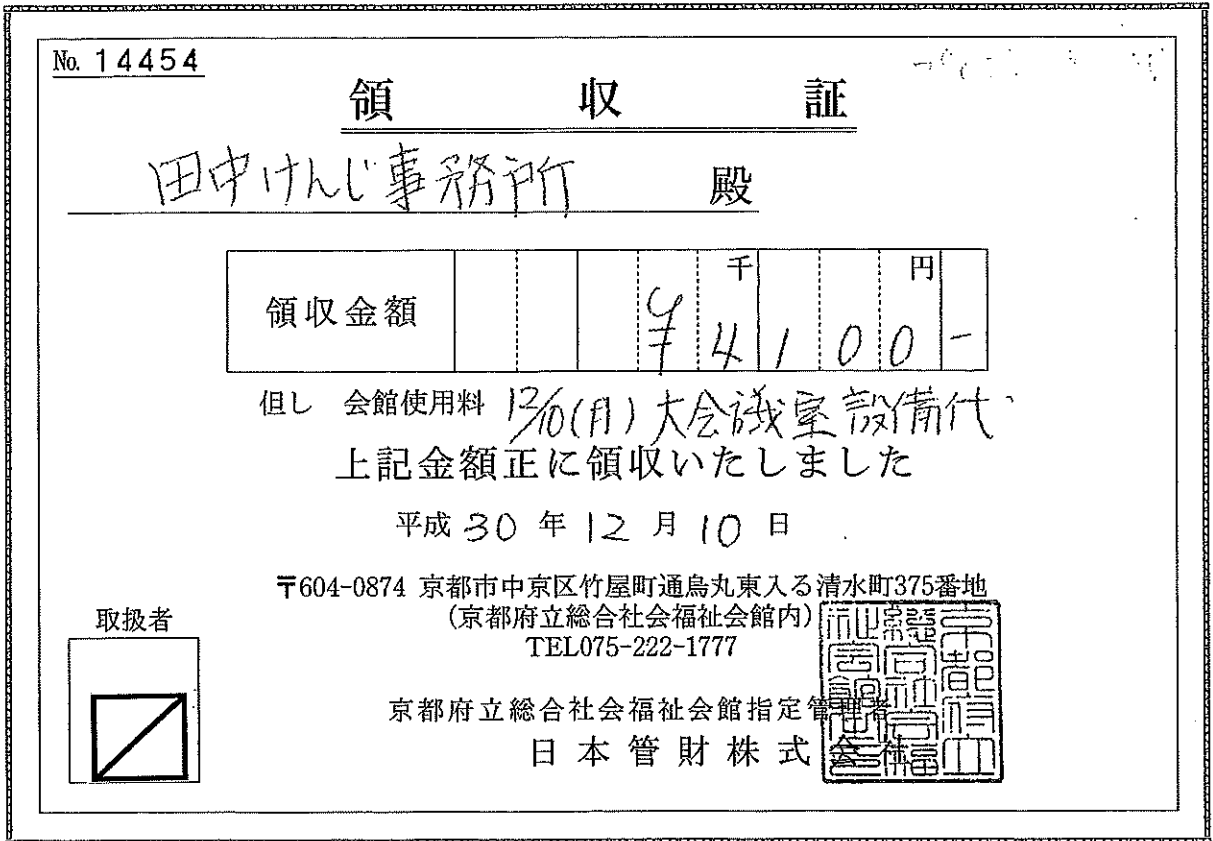 No. 14454
領収証
田中けんじ事務所 殿
千 円
領収金額 ¥4100-
但し 会館使用料 12/10(月)大会議室設備代
上記金額正に領収いたしました
平成30年12月10日
〒604-0874 京都市中京区竹屋町通烏丸東入る清水町375番地
(京都府立総合社会福祉会館内)
TEL075-222-1777
取扱者
京都府立総合社会福祉会館指定管理者
日本管財株式会社